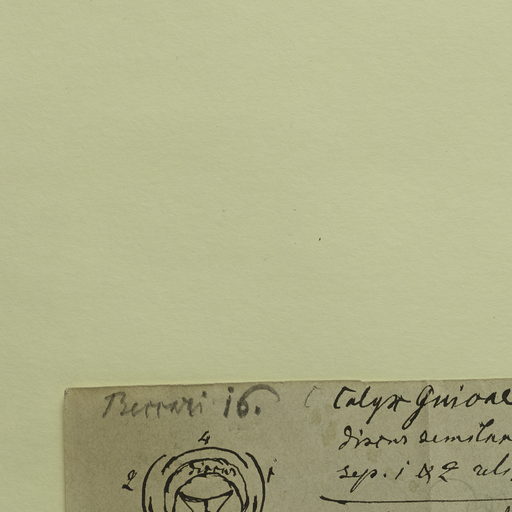 Beccari 16.
Calyx Guioae
discus semilun
sep. 1 & 2
4
2 discus 1